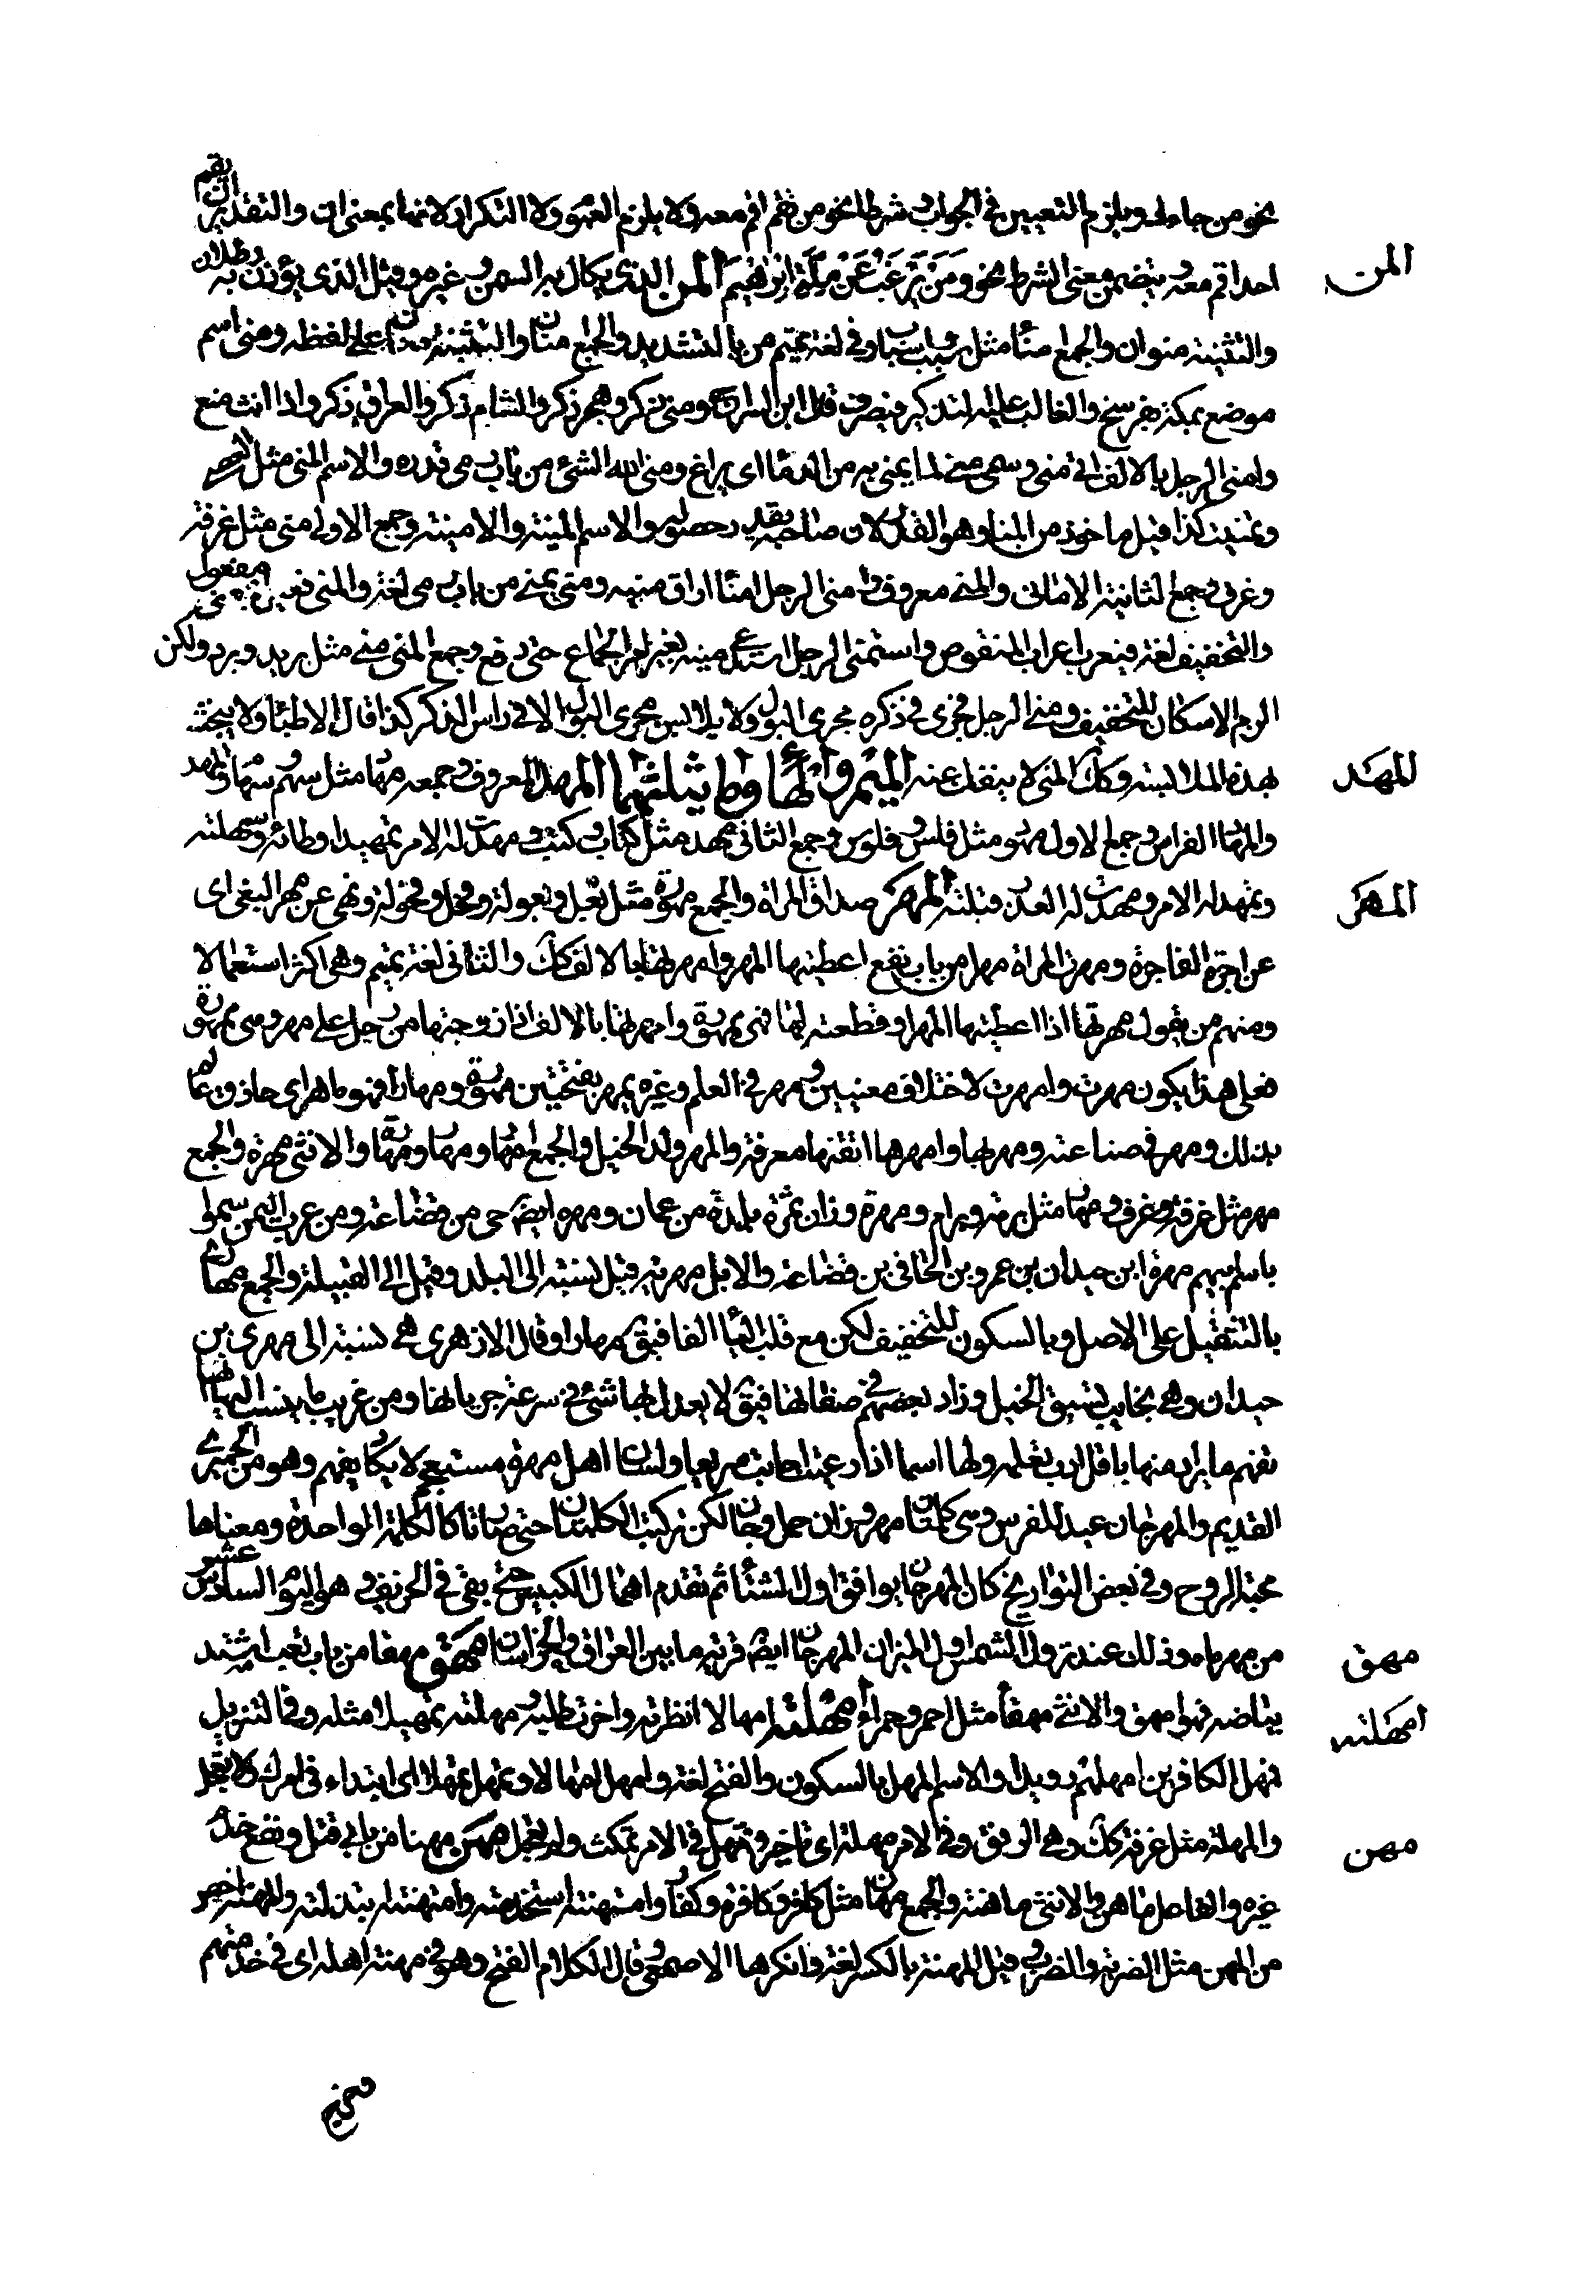 نحو من جاءك ويلزم التعيين في الجواب وشرطا نحو من يقم اقم معه ولا يلزم العموم ولا التكرار لانها بمعنى ان والتقدير ان يقم
المن
احد اقم معه ويتضمن معنى الشرط نحو وَمَنْ يَرْغَبُ عَنْ مِلَّةِ اِبْرَاهِيمَ المن الذى يكال به السمن وغيره وقيل الذى يوزن به رطلان
والتثنية منوان والجمع امناء مثل سبب اسباب وفي لغة تميم من بالتشديد والجمع امنان والتثنية منان على لفظه ومنى اسم
موضع بمكة فرسخ والغالب عليه التذكير فيصرف قال ابن السراج ومنى ذكر وهجر ذكر والشام ذكر والعراق ذكر واذا انث منع
وامنى الرجل بالالف اتى منى وسمى منى لما يمنى به من الدماء اى يراغ ومنى الله الشئ من باب رمى قدره والاسم المنى مثل العصى
وتمنيت كذا قيل ماخوذ من المنا وهو القدر لان صاحبه يقدر حصوله والاسم المنية والامنية وجمع الاولى منى مثل غرفة
وغرف وجمع الثانية الامانى والمنى معروف وامنى الرجل امناء اراق منيه ومنى يمنى من باب رمى لغة والمنى فعيل بمعنى مفعول
والتخفيف لغة فيعرب اعراب المنقوص واستمنى الرجل استدعى منيه بغير الجماع حتى دفع وجمع المنى منى مثل بريد وبرد ولكن
الزم الاسكان للتخفيف ومنى الرجل مجرى في ذكره مجرى البول ولا يلابس مجرى البول الا في راس الذكر كذا قال الاطباء ولا ينجس
المهد
بهذه الملابسة وكان المنى لا ينفك عنه الميم والهاء وما يثلثهما المهد المعروف وجمعه مهاد مثل سهم وسهام والمهد
والمهاد الفراش وجمع الاول مهود مثل فلس وفلوس وجمع الثانى مهد مثل كتاب وكتب ومهدت له الامر تمهيدا وطاته وسهلته
المهر
وتمهد له الامر ومهدت له العذر قبلته المهر صداق المراة والجمع مهورة مثل بعل وبعولة وفحل وفحولة ونهى عن مهر البغى اى
عن اجرة الفاجرة ومهرت المراة مهرا من باب نفع اعطيتها المهر وامهرتها بالالف كذلك والثانى لغة تميم وهى اكثر استعمالا
ومنهم من يقول مهرتها اذا اعطيتها المهر او قطعته لها فهى ممهورة وامهرتها بالالف اذا زوجتها من رجل على مهر وهى ممهرة
فعلى هذا يكون مهرت وامهرت لاختلاف معنيين ومهر في العلم وغيره يمهر بفتحتين مهورة ومهارة فهو ماهر اى حاذق عالم
بذلك ومهر في صناعته ومهر بها وامهرها اتقنها معرفة والمهر ولد الخيل والجمع امهار ومهار ومهارة والانثى مهرة والجمع
مهر مثل غرفة وغرف ومهار مثل برمة وبرام ومهرة وزان تمرة بلدة من عمان ومهره ايضا حى من قضاعة ومن عرب اليمن سموا
باسم ابيهم مهرة ابن حيدان بن عمرو بن الحافى بن قضاعة والابل مهرية قيل نسبة الى البلد وقيل الى القبيلة والجمع مهارى
بالتثقيل على الاصل وبالسكون للتخفيف لكن مع قلب الياء الفا فيقال مهارا وقال الازهرى هى نسبة الى مهرى بن
حيدان وهى نجايب تسبق الخيل وزاد بعضهم في صفاتها فيقال لا يعدل بها شئ في سرعة جريانها ومن غريب ما ينسب اليها انها
تفهم ما يراد منها باقل ادب تعلمه ولها اسماء اذا دعيت اجابت سريعا ولسان اهل مهرة مستعجم لا يكاد يفهم وهو من الحميرى
القديم والمهرجان عيد للفرس وهى كلمتان مهر وزان حمل وجان لكن تركبت الكلمتان حتى صارتا كالكلمة الواحدة ومعناها
محبة الروح وفي بعض التواريخ كان المهرجان يوافق اول الشتاء ثم تقدم اهمال الكبيس حتى بقى في الخريف وهو اليوم السادس عشر
مهق
من مهرماه وذلك عند نزول الشمس اول الميزان المهرجان ايضا قرية ما بين العراق والخراسان مَهِقَ مهقا من باب تعب اشتد
امهلته
بياضه فهو امهق والانثى مهقاء مثل احمر وحمراء أمهلته امهالا انظرته واخرت طلبه ومهلته تمهيلا مثله وفي التنزيل
فمهل الكافرين امهلهم رويدا والاسم المهل بالسكون والفتح لغة وامهل امهالا وتمهل تمهلا اى ابتداء في امرك ولا تعجل
مهن
والمهلة مثل غرفة كذلك وهى الرفق وفي الامر مهلة اى تاخير وتمهل في الامر تمكث ولم يعجل مَهَنَ مهنا من بابى قتل ونفع خدم
غيره والفاعل ماهن والانثى ماهنة والجمع مهان مثل كافر وكافرة وكفار وامتهنته استخدمته وامتهنته ابتذلته والمهنة اخص
من المهن مثل الضربة والضرب وقيل المهنة بالكسر لغة وانكرها الاصمعى وقال الكلام الفتح وهو في مهنة اهله اى في خدمتهم